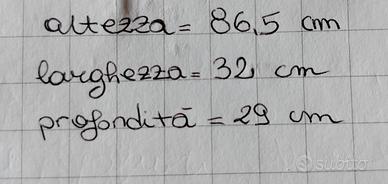 altezza = 86,5 cm
larghezza = 32 cm
profondità = 29 cm
subito